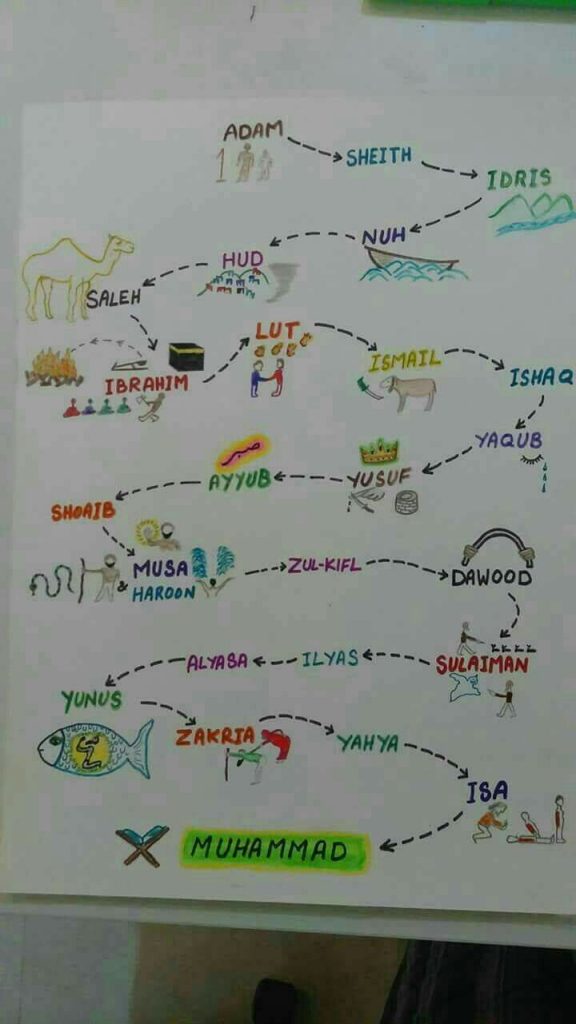 ADAM
SHEITH
IDRIS
NUH
HUD
SALEH
IBRAHIM
LUT
ISMAIL
ISHAQ
YAQUB
YUSUF
AYYUB
SHOAIB
MUSA
& HAROON
ZUL-KIFL
DAWOOD
SULAIMAN
ILYAS
ALYASA
YUNUS
ZAKRIA
YAHYA
ISA
MUHAMMAD